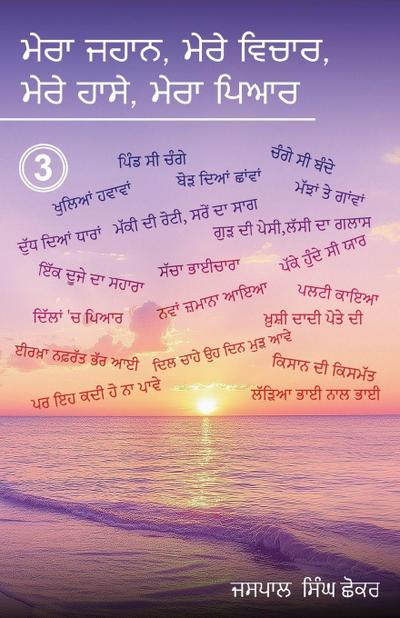 ਮੇਰਾ ਜਹਾਨ, ਮੇਰੇ ਵਿਚਾਰ,
ਮੇਰੇ ਹਾਸੇ, ਮੇਰਾ ਪਿਆਰ
3
ਪਿੰਡ ਸੀ ਚੰਗੇ
ਚੰਗੇ ਸੀ ਬੰਦੇ
ਖੁਲਿਆਂ ਹਵਾਵਾਂ
ਬੋੜ ਦਿਆਂ ਛਾਂਵਾਂ
ਮੱਝਾਂ ਤੇ ਗਾਂਵਾਂ
ਦੁੱਧ ਦਿਆਂ ਧਾਰਾਂ
ਮੱਕੀ ਦੀ ਰੋਟੀ, ਸਰੋਂ ਦਾ ਸਾਗ
ਗੁੜ ਦੀ ਪੇਸੀ,ਲੱਸੀ ਦਾ ਗਲਾਸ
ਇੱਕ ਦੂਜੇ ਦਾ ਸਹਾਰਾ
ਸੱਚਾ ਭਾਈਚਾਰਾ
ਪੱਕੇ ਹੁੰਦੇ ਸੀ ਯਾਰ
ਦਿੱਲਾਂ 'ਚ ਪਿਆਰ
ਨਵਾਂ ਜ਼ਮਾਨਾ ਆਇਆ
ਪਲਟੀ ਕਾਇਆ
ਖ਼ੁਸ਼ੀ ਦਾਦੀ ਪੋਤੇ ਦੀ
ਈਰਖ਼ਾ ਨਫ਼ਰਤ ਭੱਰ ਆਈ
ਦਿਲ ਚਾਹੇ ਉਹ ਦਿਨ ਮੁੜ ਆਵੇ
ਕਿਸਾਨ ਦੀ ਕਿਸਮੱਤ
ਪਰ ਇਹ ਕਦੀ ਹੋ ਨਾ ਪਾਵੇ
ਲੱੜਿਆ ਭਾਈ ਨਾਲ ਭਾਈ
ਜਸਪਾਲ ਸਿੰਘ ਛੋਕਰ